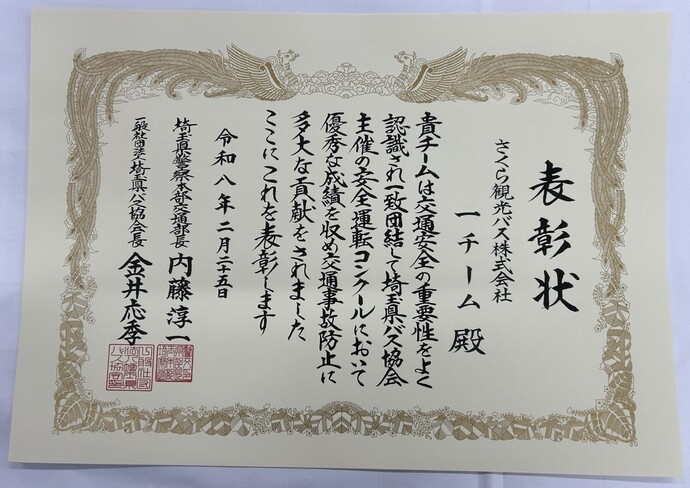 表彰状
さくら観光バス株式会社
一チーム 殿
貴チームは交通安全の重要性をよく
認識され一致団結して埼玉県バス協会
主催の安全運転コンクールにおいて
優秀な成績を収め交通事故防止に
多大な貢献をされました
ここにこれを表彰します
令和八年二月二十五日
埼玉県警察本部交通部長 内藤淳一
一般社団法人埼玉県バス協会会長 金井応季